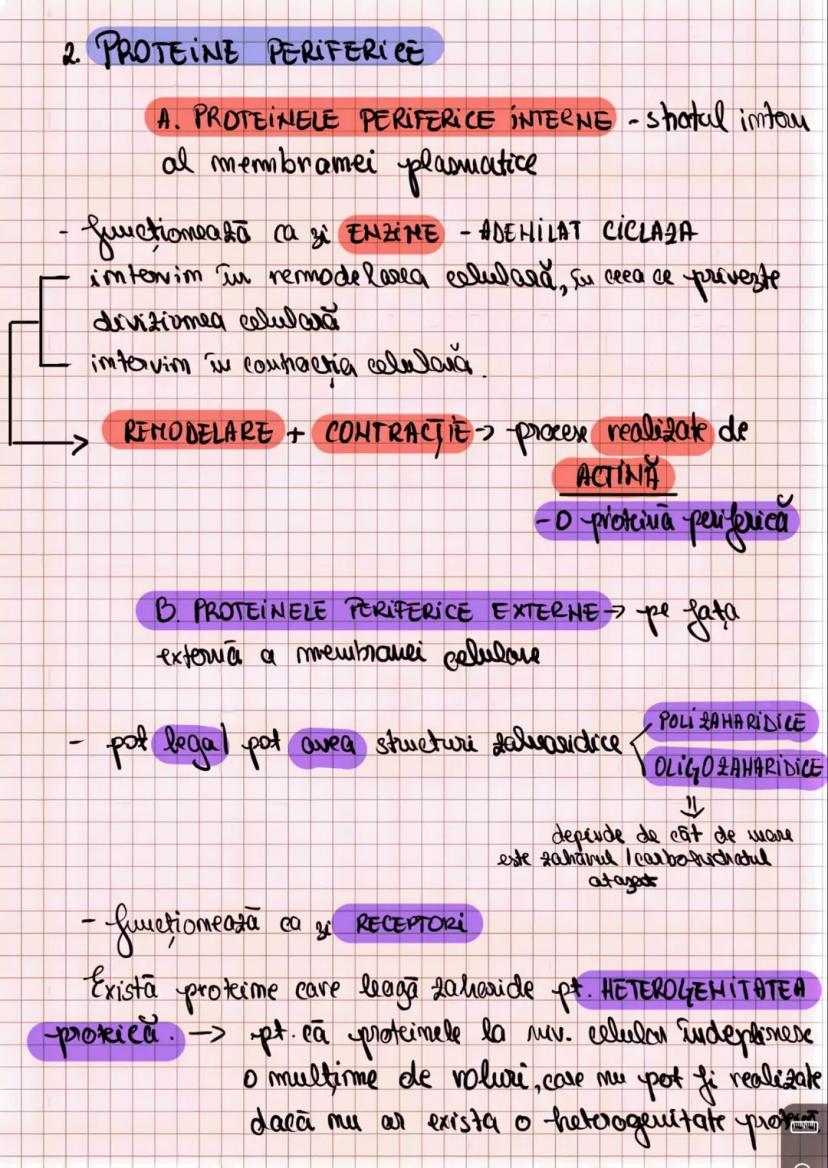 2. PROTEINE PERIFERICE
A. PROTEINELE PERIFERICE INTERNE - stratul intern
al membranei plasmatice
- funcționează ca și ENZIME - ADENILAT CICLAZA
intervin în remodelarea celulară, în ceea ce privește
diviziunea celulară
intervin în contracția celulară.
REMODELARE + CONTRACȚIE → procese realizate de
ACTINĂ
- O proteină periferică
B. PROTEINELE PERIFERICE EXTERNE → pe fața
externă a membranei celulare
- pot lega / pot avea structuri zaharidice
POLIZAHARIDICE
OLIGOZAHARIDICE
⇓
depinde de cât de mare
este zaharul / carbohidratul
atașat
- funcționează ca și RECEPTORI
Există proteine care leagă zaharide pt. HETEROGENITATEA
proteică. → pt. că proteinele la niv. celular îndeplinesc
o mulțime de roluri, care nu pot fi realizate
dacă nu ar exista o heterogenitate